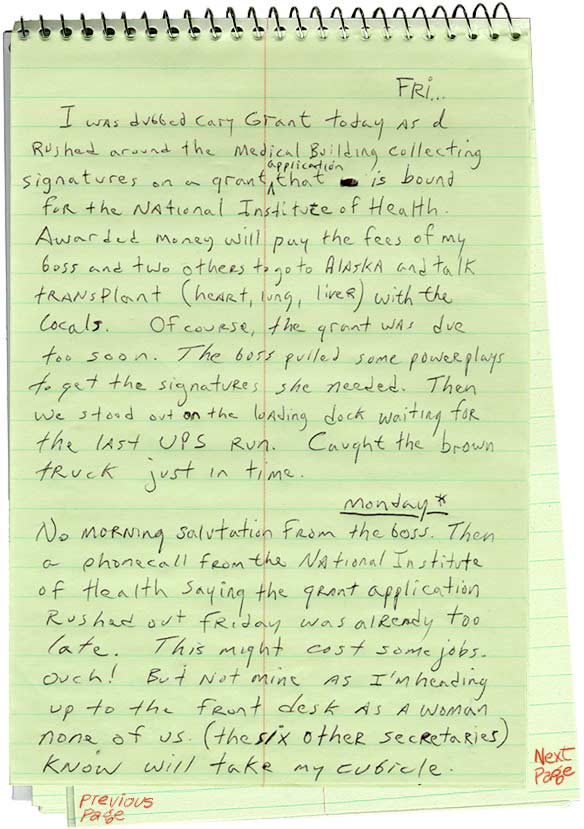 FRI...
I was dubbed Cary Grant today as I
Rushed around the Medical Building collecting
application
signatures on a grant that is bound
for the National Institute of Health.
Awarded money will pay the fees of my
boss and two others to go to Alaska and talk
transplant (heart, lung, liver) with the
locals. Of course, the grant was due
too soon. The boss pulled some powerplays
to get the signatures she needed. Then
we stood out on the loading dock waiting for
the last UPS run. Caught the brown
truck just in time.
monday*
No morning salutation from the boss. Then
a phonecall from the National Institute
of Health saying the grant application
Rushed out Friday was already too
late. This might cost some jobs.
Ouch! But not mine as I'm heading
up to the front desk as a woman
none of us (the six other secretaries)
know will take my cubicle.
Next
Page
Previous
Page